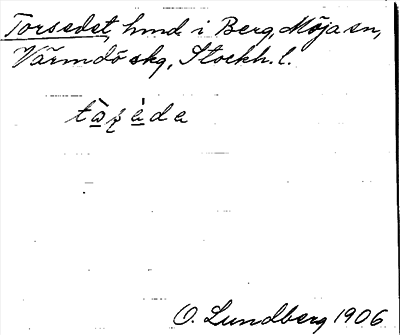 Torsedet, hmd i Berg, Möja sn,
Värmdö skg, Stockh. l.
O. Lundberg 1906